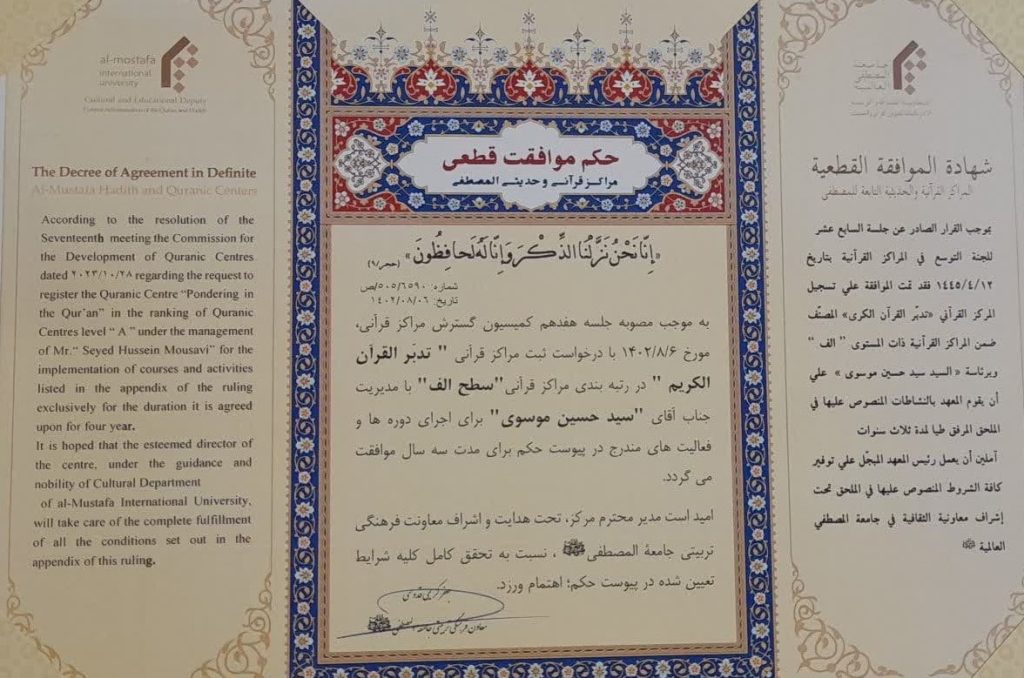 al-mostafa
international
university
Cultural and Educational Deputy
The Decree of Agreement in Definite
Al-Mustafa Hadith and Quranic Centers
According to the resolution of the
Seventeenth meeting the Commission for
the Development of Quranic Centres
dated ٢٠٢٣/١٠/٢٨ regarding the request to
register the Quranic Centre “Pondering in
the Qur'an” in the ranking of Quranic
Centres level “ A ” under the management
of Mr.“ Seyed Hussein Mousavi” for the
implementation of courses and activities
listed in the appendix of the ruling
exclusively for the duration it is agreed
upon for four year.
It is hoped that the esteemed director of
the centre, under the guidance and
nobility of Cultural Department
of al-Mustafa International University,
will take care of the complete fulfillment
of all the conditions set out in the
appendix of this ruling.
حکم موافقت قطعی
مراکز قرآنی و حدیثی المصطفی
«إِنَّا نَحْنُ نَزَّلْنَا الذِّكْرَ وَإِنَّا لَهُ لَحَافِظُونَ» (حجر/٩)
شماره: ۵۰۵/۶۵۹۰/ص
تاریخ: ۱۴۰۲/۰۸/۰۶
به موجب مصوبه جلسه هفدهم کمیسیون گسترش مراکز قرآنی،
مورخ ۱۴۰۲/۸/۶ با درخواست ثبت مراکز قرآنی " تدبّر القرآن
الکریم " در رتبه بندی مراکز قرآنی "سطح الف" با مدیریت
جناب آقای "سید حسین موسوی" برای اجرای دوره ها و
فعالیت های مندرج در پیوست حکم برای مدت سه سال موافقت
می گردد.
امید است مدیر محترم مرکز، تحت هدایت و اشراف معاونت فرهنگی
تربیتی جامعة المصطفی ﷺ ، نسبت به تحقق کامل کلیه شرایط
تعیین شده در پیوست حکم؛ اهتمام ورزد.
معاون فرهنگی تربیتی جامعة المصطفی ﷺ
جامعة
المصطفی
العالمية
شهادة الموافقة القطعية
المراكز القرآنية والحديثية التابعة للمصطفى
بموجب القرار الصادر عن جلسة السابع عشر
للجنة التوسع في المراكز القرآنية بتاريخ
١٤٤٥/٤/١٢ فقد تمت الموافقة علي تسجيل
المركز القرآني «تدبّر القرآن الكرى» المصنّف
ضمن المراكز القرآنية ذات المستوى " الف "
وبرئاسة « السيد سيد حسين موسوى » علي
أن يقوم المعهد بالنشاطات المنصوص عليها في
الملحق المرفق طيا لمدة ثلاث سنوات
آملين أن يعمل رئيس المعهد المبجّل علي توفير
كافة الشروط المنصوص عليها في الملحق تحت
إشراف معاونية الثقافية في جامعة المصطفي
العالمية ﷺ